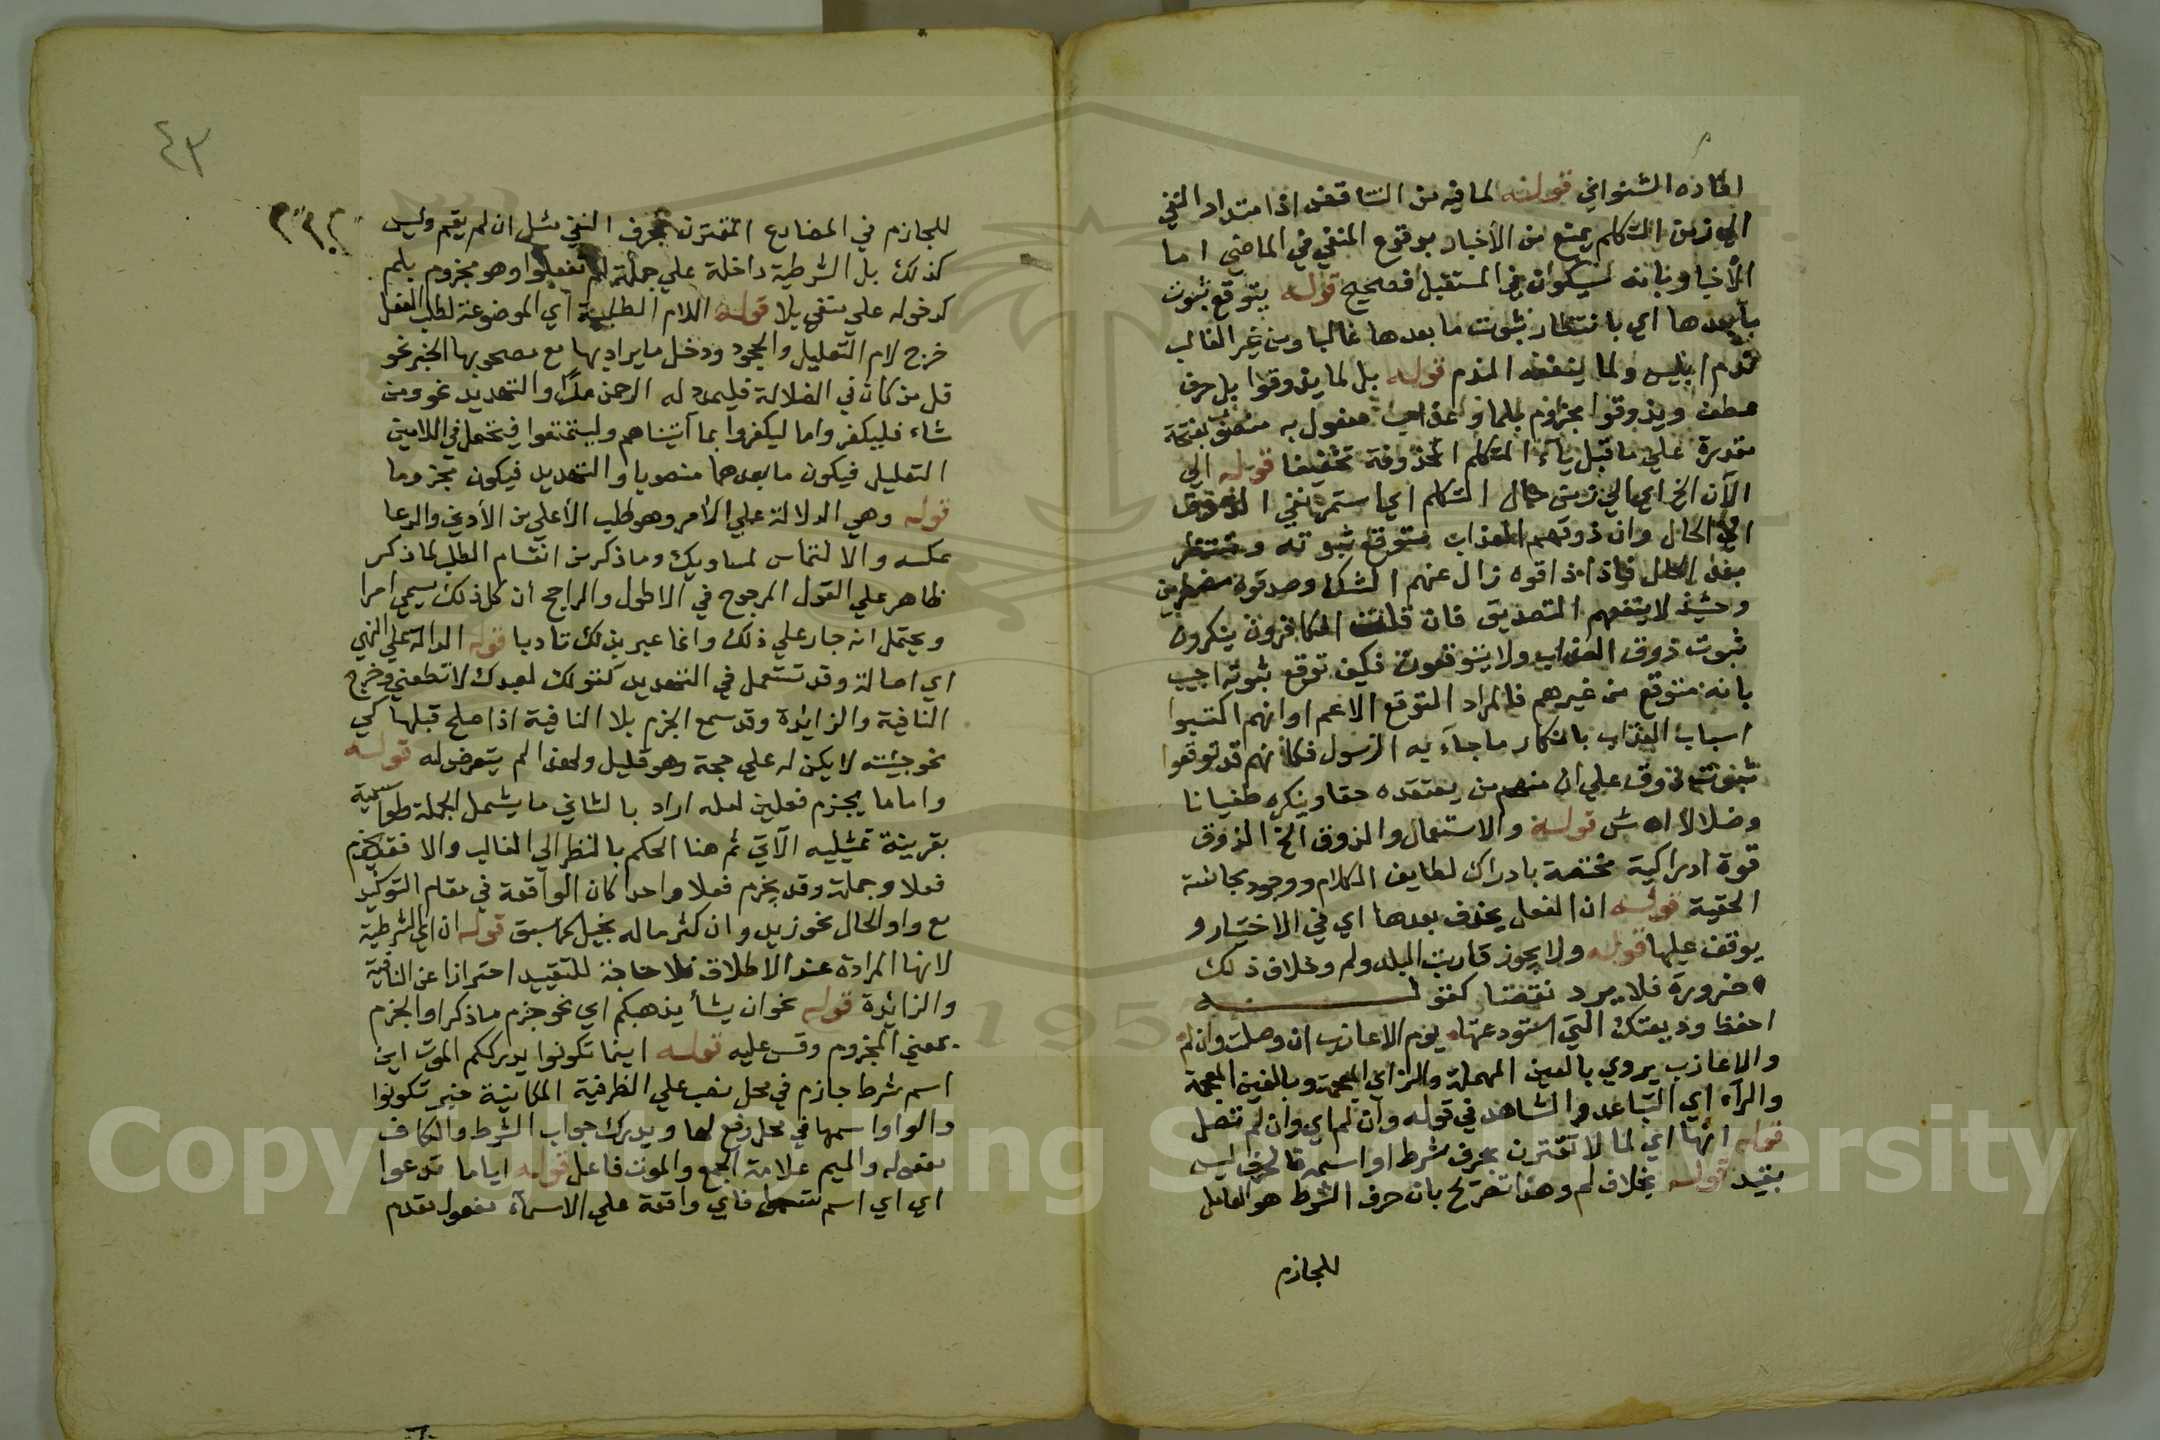 افاده الشنواني قوله لما فيه من التناقض اذ امتداد النفي
الي زمن التكلم يمنع من الأخبار بوقوع المنفي في الماضي اما
الأخبار بانه سيكون في المستقبل فصحيح قوله يتوقع ثبوت
ما بعدها اي بانتظار ثبوت ما بعدها غالبا ومن غير الغالب
ندم ابليس ولما ينفعه الندم قوله بل لما يذوقوا بل حرف
عطف ويذوقوا مجزوم بلما وعذاب مفعول به منصوب بفتحة
مقدرة علي ما قبل ياء المتكلم المحذوفة تخفيفا قوله الي
الآن الخ اي الي زمن حال التكلم اي استمر نفي الذوق
الي الحال وان ذوقهم العذاب متوقع ثبوته ومنتظر
بعد الحال فاذا ذاقوه زال عنهم الشك وصدقوه
وحينئذ لا ينفعهم التصديق فان قلت الكافرون ينكرون
ثبوت ذوق العذاب ولا يتوقعون فكيف توقع ثبوته اجيب
بانه متوقع من غيرهم فالمراد المتوقع الاعم او انهم اكتسبوا
اسباب العذاب بانكار ما جاء به الرسول فكانهم قد توقعوا
ثبوت ذوق علي ان منهم من يعتقده حقا وينكره طغيانا
وضلالا اه ش قوله والاستعمال والذوق الخ الذوق
قوة ادراكية مختصة بادراك لطايف الكلام ووجوه محاسنه
الحقية قوله ان الفعل يحذف بعدها اي في الاختيار و
يوقف عليها قوله ولا يجوز قاربت البلد ولم وخلاف ذلك
ضرورة فلا يرد نقضا كقوله
احفظ وديعتك التي استودعتها يوم الاعازب ان وصلت وان لم
والاعازب يروي بالعين المهملة والزاي المعجمة وبالغين المعجمة
والراء اي التباعد والشاهد في قوله وان لم اي وان لم تصل
قوله انها اي لما لا تقترن بحرف شرط او اسمه فالحرف ليس
بقيد قوله بخلاف لم وهذا تصريح بان حرف الشرط هو العامل
للجازم
٤٣
للجازم في المضارع المقترن بحرف النفي مثل ان لم يقم وليس
كذلك بل الشرطية داخلة علي جملة لم تفعلوا وهو مجزوم بلم
كدخوله علي منفي بلا قوله اللام الطلبية اي الموضوعة لطلب الفعل
خرج لام التعليل والجحود ودخل ما يراد بها مع مصحوبها الخبر نحو
قل من كان في الضلالة فليمدد له الرحمن مدا والتهديد نحو ومن
شاء فليكفر واما ليكفروا بما آتيناهم وليتمتعوا فيحتمل في اللامين
التعليل فيكون ما بعدهما منصوبا والتهديد فيكون مجزوما
قوله وهي الدلالة علي الأمر وهو طلب الأعلي من الأدني والدعا
عكسه والالتماس لمساويك وما ذكر من انقسام الطلب لما ذكر
ظاهر علي القول المرجوح في الاطول والراجح ان كل ذلك يسمي امرا
ويحتمل انه جار علي ذلك وانما عبر بذلك تادبا قوله الدالة علي النهي
اي اصالة وقد تستعمل في التهديد كقولك لعبدك لا تطعني وخرج
النافية والزايدة وقد سمع الجزم بلا النافية اذا صلح قبلها كي
نحو جئته لا يكن له علي حجة وهو قليل ولهذا لم يتعرض له قوله
واما ما يجزم فعلين لعله اراد بالثاني ما يشمل الجملة الاسمية
بقرينة تمثيليه الآتي ثم هنا الحكم بالنظر الي الغالب والا فقد يجزم
فعلا وجملة وقد يجزم فعلا واحدا كان الواقعة في مقام التوكيد
مع واو الحال نحو زيد وان كثر ماله بخيل كما سبق قوله ان اي الشرطية
لانها المرادة عند الاطلاق فلا حاجة للتقييد احترازا عن النافية
والزايدة قوله نحو ان يشأ يذهبكم اي نحو جزم ما ذكر او الجزم
بمعني المجزوم وقس عليه قوله اينما تكونوا يدرككم الموت اين
اسم شرط جازم في محل نصب علي الظرفية المكانية خبر تكونوا
والواو اسمها في محل رفع لها ويدرك جواب الشرط والكاف
مفعوله والميم علامة الجمع والموت فاعل قوله اياما تدعوا
اي اي اسم فاي واقعة علي الاسماء مفعول مقدم
Copyright © King Saud University
1957